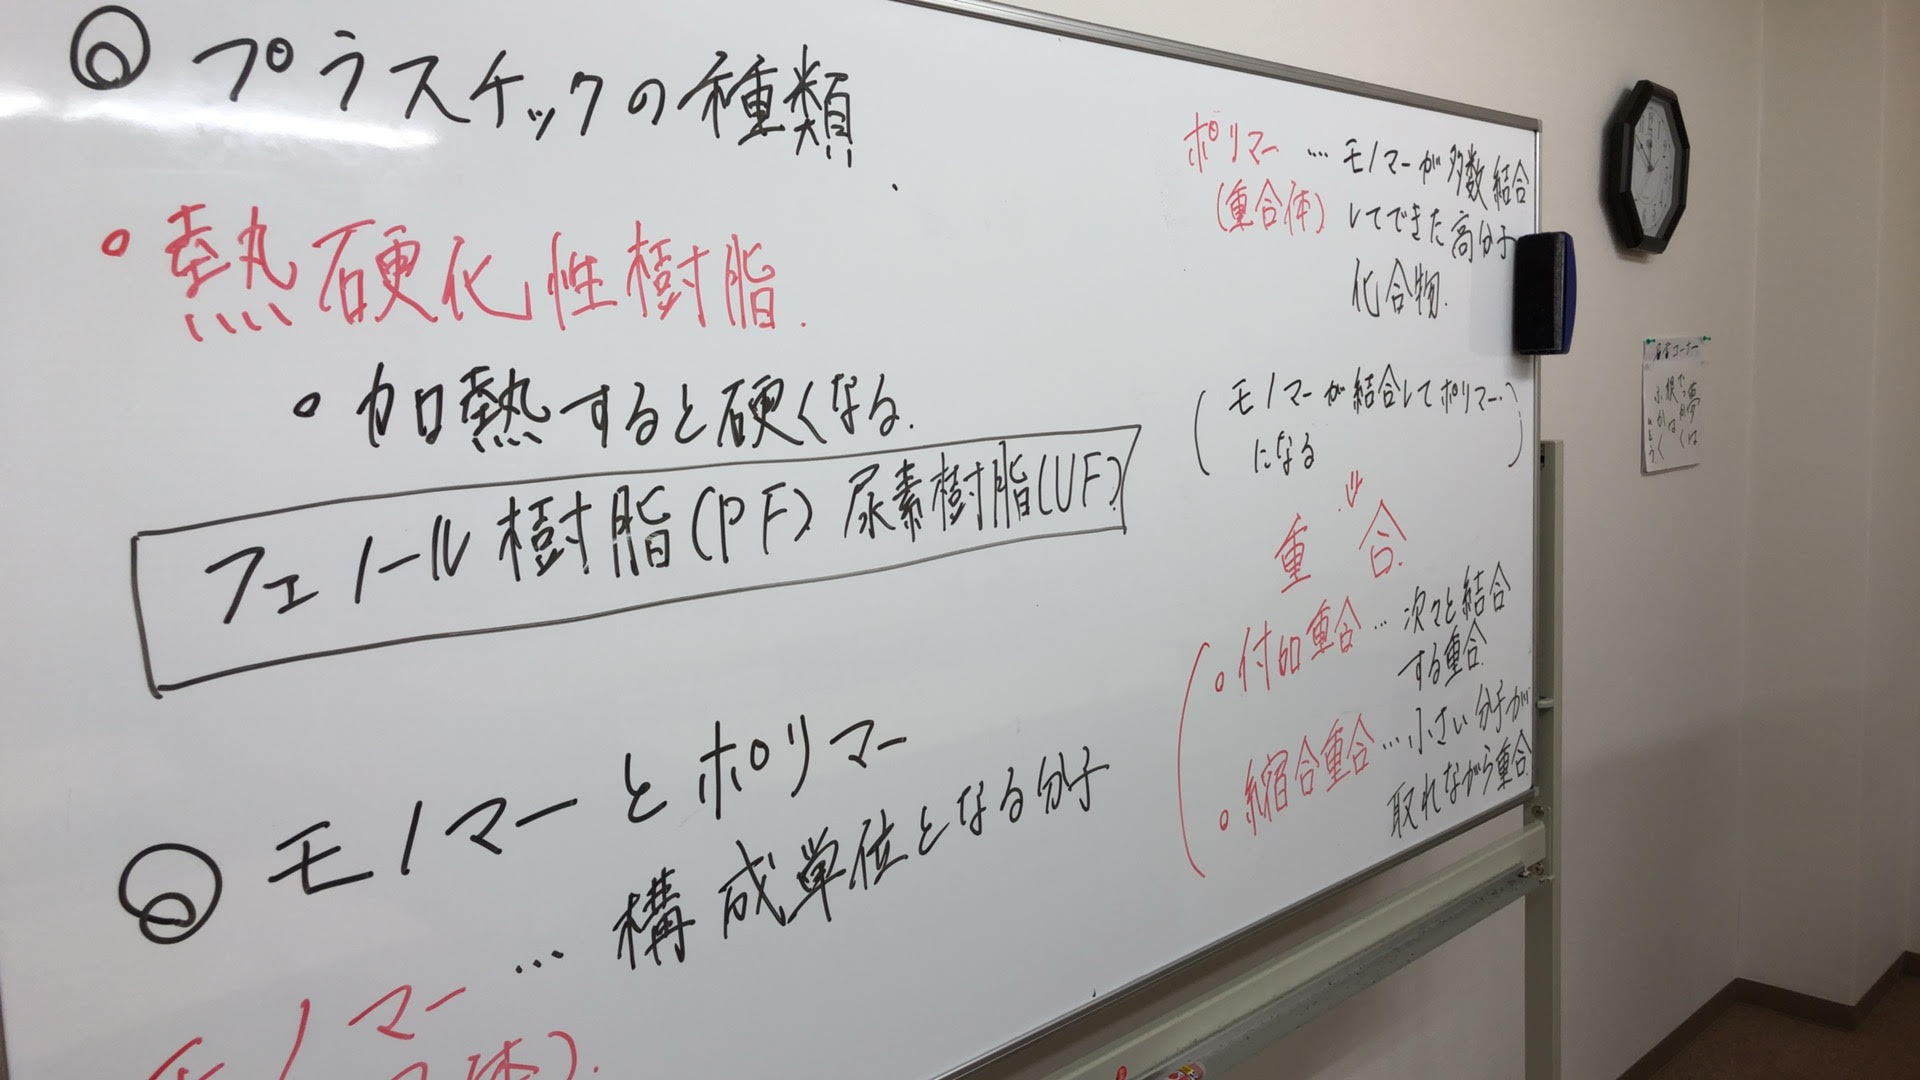 ◎ プラスチックの種類
・熱硬化性樹脂.
・加熱すると硬くなる.
フェノール樹脂(PF) 尿素樹脂(UF)
◎ モノマーとポリマー
モノマー … 構成単位となる分子
体).
ポリマー …. モノマーが多数結合
(重合体) してできた高分子
化合物.
(モノマーが結合してポリマー
になる)
⇓
重合.
・付加重合 … 次々と結合
する重合.
・縮合重合 … 小さい分子が
取れながら重合